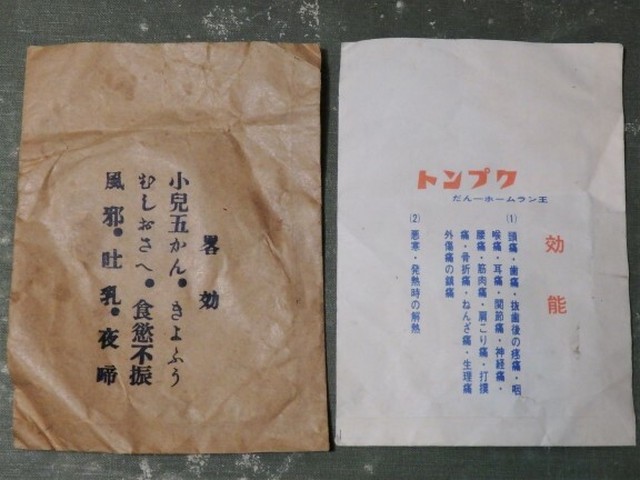 畧効
小兒五かん。きよふう
むしおさへ。食慾不振
風邪。吐乳。夜啼
トンプク
だん一ホームラン王
効能
(1) 頭痛・歯痛・抜歯後の疼痛・咽
喉痛・耳痛・関節痛・神経痛・
腰痛・筋肉痛・肩こり痛・打撲
痛・骨折痛・ねんざ痛・生理痛
外傷痛の鎮痛
(2) 悪寒・発熱時の解熱